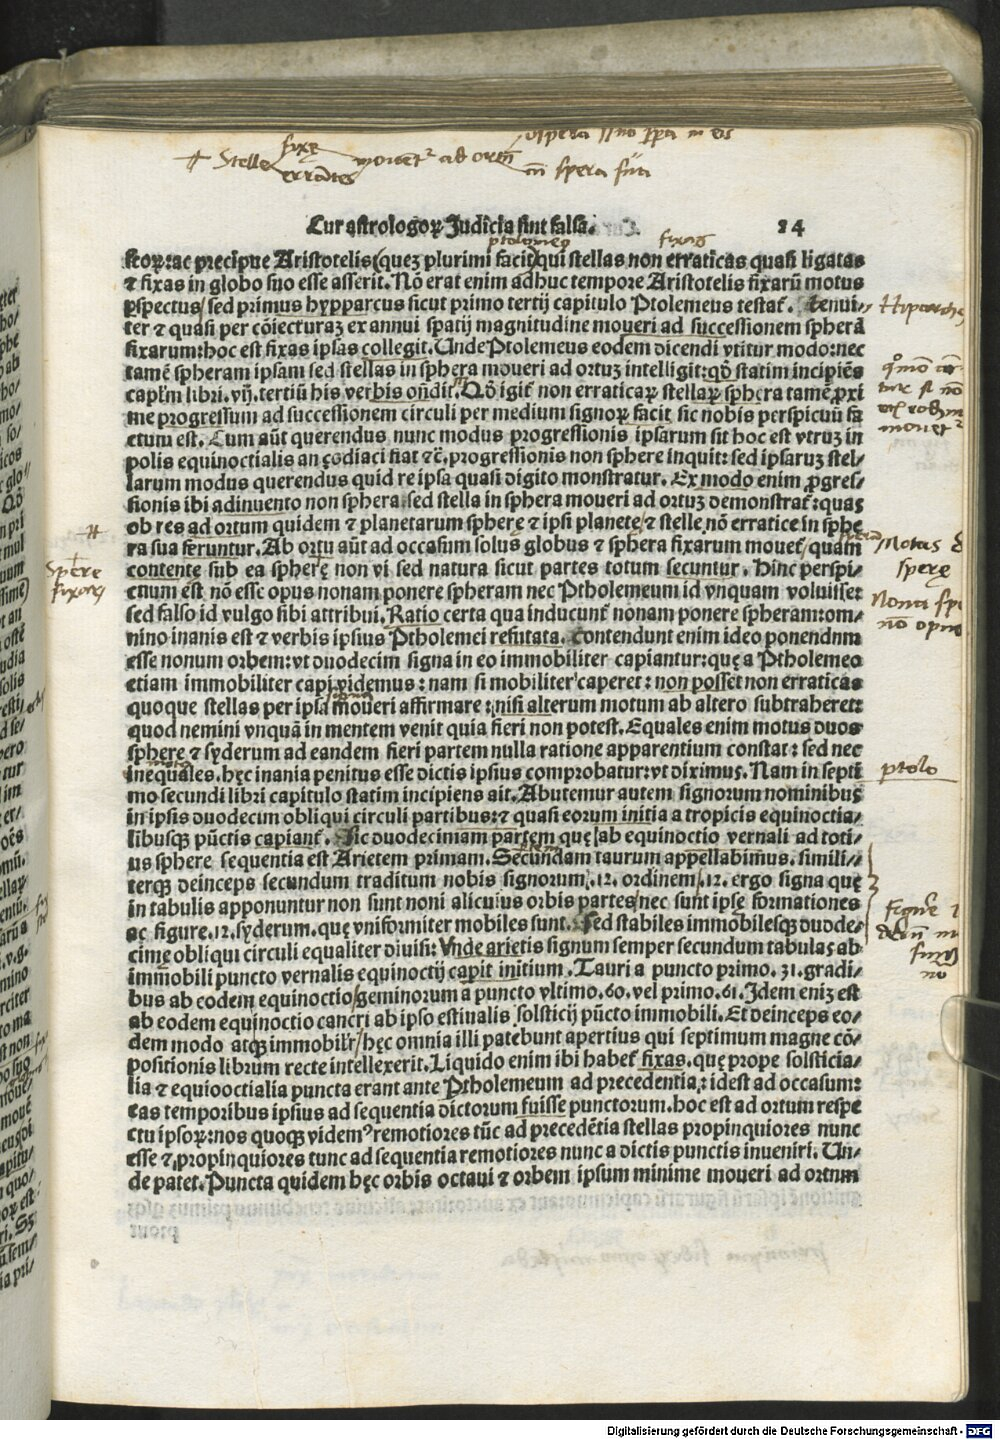 Cur astrologoꝝ Judicia sint falsa. 14
stoꝝ: ac precipue Aristotelis (queꝫ plurimi facit) qui stellas non erraticas quasi ligatas
⁊ fixas in globo suo esse asserit. Nō erat enim adhuc tempore Aristotelis fixarū motus
ꝑspectus/ sed primus hypparcus sicut primo tertij capitulo Ptolemeus testat̄. tenui⸗
ter ⁊ quasi per cōiecturaꝫ ex annui spatij magnitudine moueri ad successionem spherā
fixarum: hoc est fixas ipsas collegit. Unde Ptolemeus eodem dicendi vtitur modo: nec
tamē spheram ipsam sed stellas in sphera moueri ad ortuꝫ intelligit: qđ statim incipiēs
capl̄m libri. vij. tertiū his verbis ondit. Qđ igit̄ non erraticaꝝ stellaꝝ sphera tamē ꝓxi
me progressum ad successionem circuli per medium signoꝝ facit sic nobis perspicuū fa
ctum est. Cum aūt querendus nunc modus progressionis ipsarum sit hoc est vtruꝫ in
polis equinoctialis an ȩodiaci fiat ⁊c̄. progressionis non sphere inquit: sed ipsaruꝫ stel⸗
larum modus querendus quid re ipsa quasi digito monstratur. Ex modo enim ꝓgres⸗
sionis ibi adinuento non sphera sed stella in sphera moueri ad ortuꝫ demonstrat̄: quas
ob res ad ortum quidem ⁊ planetarum spherę ⁊ ipsi planete/ ⁊ stelle nō erratice in sphe
ra sua feruntur. Ab ortu aūt ad occasum solus globus ⁊ sphera fixarum mouet̄/ quam
contente sub ea spherę non vi sed natura sicut partes totum secuntur. Hinc perspi⸗
cuum est nō esse opus nonam ponere spheram nec Ptholemeum id vnquam voluisse:
sed falso id vulgo sibi attribui. Ratio certa qua inducunt̄ nonam ponere spheram: om⸗
nino inanis est ⁊ verbis ipsius Ptholemei refutata. contendunt enim ideo ponendum
esse nonum orbem: vt duodecim signa in eo immobiliter capiantur: quę a Ptholemeo
etiam immobiliter capi videmus: nam si mobiliter caperet: non posset non erraticas
quoque stellas per ipsa moueri affirmare: nisi alterum motum ab altero subtraheret:
quod nemini vnquā in mentem venit quia fieri non potest. Equales enim motus duos
sphere ⁊ syderum ad eandem fieri partem nulla ratione apparentium constat: sed nec
inequales. hęc inania penitus esse dictis ipsius comprobatur: vt diximus. Nam in septi
mo secundi libri capitulo statim incipiens ait. Abutemur autem signorum nominibus
in ipsis duodecim obliqui circuli partibus: ⁊ quasi eorum initia a tropicis equinoctia⸗
libusqꝫ pūctis capiant̄. Sic duodecimam partem quę ab equinoctio vernali ad toti⸗
us sphere sequentia est Arietem primam. Secundam taurum appellabimus. simili⸗
terqꝫ deinceps secundum traditum nobis signorum .12. ordinem .12. ergo signa quę
in tabulis apponuntur non sunt noni alicuius orbis partes/ nec sunt ipsę formationes
ac figure .12. syderum. quę vniformiter mobiles sunt. Sed stabiles immobilesqꝫ duode⸗
cimę obliqui circuli equaliter diuisi: Unde arietis signum semper secundum tabulas ab
immobili puncto vernalis equinoctij capit initium. Tauri a puncto primo .31. gradi⸗
bus ab eodem equinoctio/ geminorum a puncto vltimo .60. vel primo .61. Idem enīꝫ est
ab eodem equinoctio cancri ab ipso estiualis solsticij pūcto immobili. Et deinceps eo⸗
dem modo atqꝫ immobilr̄/ hęc omnia illi patebunt apertius qui septimum magne cō⸗
positionis librum recte intellexerit. Liquido enim ibi habet̄ fixas. quę prope solsticia⸗
lia ⁊ equiooctialia puncta erant ante Ptholemeum ad precedentia: idest ad occasum:
eas temporibus ipsius ad sequentia dictorum fuisse punctorum. hoc est ad ortum respe
ctu ipsoꝝ: nos quoqꝫ videmꝰ remotiores tūc ad precedētia stellas propinquiores nunc
esse ⁊ propinquiores tunc ad sequentia remotiores nunc a dictis punctis inueniri. Un⸗
de patet. Puncta quidem hęc orbis octaui ⁊ orbem ipsum minime moueri ad ortum
# Stelle fixę
errātes
ptolomeo
fixas
Spere
fixorę
Motus 8
sperę
ptolo